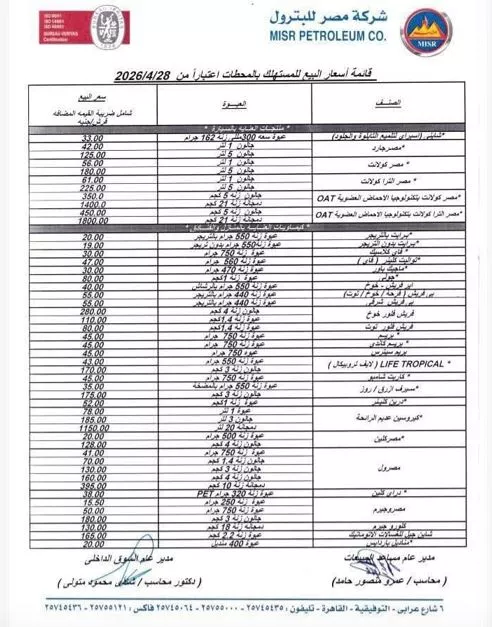 ISO 9001
BUREAU VERITAS
Certification
شركة مصر للبترول
MISR PETROLEUM CO.
MISR
قائمة أسعار البيع للمستهلك بالمحطات اعتباراً من 2026/4/28
الصنف العبوة سعر البيع
شامل ضريبة القيمه المضافه
قرش/جنيه
* منتجات العناية بالسيارة *
عبوة سعه 300مللى زنة 162 جرام 33.00
*مصرجارد جالون 1 لتر 42.00
جالون 5 لتر 125.00
*مصر كولانت جالون 1 لتر 56.00
جالون 5 لتر 180.00
*مصر الترا كولانت جالون 1 لتر 61.00
جالون 5 لتر 225.00
*مصر كولانت بتكنولوجيا الاحماض العضوية OAT جالون زنة 5 كجم 350.0
دمجانة زنة 21 كجم 1400.0
*مصر الترا كولانت بتكنولوجيا الاحماض العضوية OAT جالون زنة 5 كجم 450.00
دمجانة زنة 21 كجم 1800.00
*برايت بالتريجر عبوة زنة 550 جرام بالتريجر 20.00
*برايت بدون التريجر عبوة زنة 550 جرام بدون تريجر 19.00
* فاى كلاسيك عبوة زنة 750 جرام 30.00
* تواليت كلينر ( فاى ) عبوة زنة 560 جرام 47.00
* ماجيك باور عبوة زنة 470 جرام 30.00
* جولى عبوة زنة 1 كجم 80.00
اير فريش - خوخ عبوة زنة 550 جرام بالرشاش 40.00
بى فريش ( فرحة / خوخ / توت ) عبوة زنة 440 جرام بالتريجر 55.00
بى فريش شرقى عبوة زنة 440 جرام بالتريجر 55.00
فريش فلور خوخ جالون زنة 4 كجم 280.00
عبوة زنة 1.4 كجم 110.00
فريش فلور توت عبوة زنة 1.4 كجم 80.00
* بريم عبوة زنة 750 جرام 45.00
*بريم كاندى عبوة زنة 750 جرام 45.00
بريم سيترس عبوة زنة 750 جرام 45.00
* LIFE TROPICAL ( لايف تروبيكال ) عبوة زنة 550 جرام 43.00
جالون زنة 3 كجم 170.00
* كاريت شامبو عبوة زنة 750 جرام 45.00
*سيرف ازرق / روز عبوة زنة 550 جرام بالمضخة 35.00
جالون زنة 3 كجم 175.00
* درين كلينر عبوة زنة 1 كجم 52.00
*كيروسين عديم الرائحة عبوة 1 لتر 78.00
جالون 3 لتر 185.00
دمجانة 20 لتر 1150.00
*مصركلين عبوة زنة 500 جرام 20.00
جالون زنة 4 كجم 128.00
مصرول عبوة زنة 750 جرام 41.00
جالون زنة 1.4 كجم 70.00
جالون زنة 3 كجم 130.00
جالون زنة 4 كجم 160.00
دمجانة زنة 10 كجم 395.00
* دراى كلين عبوة زنة 320 جرام PET 38.00
مصروجيرم عبوة زنة 250 جرام 15.50
عبوة زنة 750 جرام 50.00
جالون زنة 3 كجم 180.00
كلورو جيرم دمجانة زنة 18 كجم 130.00
شاين جيل للغسالات الاتوماتيك عبوة زنة 2.2 كجم 165.00
* مناديل بارادايس عبوة 400 منديل 20.00
مدير عام مساعد المبيعات
مدير عام السوق الداخلى
( محاسب / عمرو منصور حامد )
( دكتور محاسب / محمود متولى )
٦ شارع عرابى - التوفيقية - القاهرة - تليفون : ٢٥٧٤٥٤٣٥ - ٢٥٧٥٥٠٠٠ - ٢٥٧٤٥٠٦٤ - ٢٥٧٥٥١٢١ فاكس : ٢٥٧٤٥٤٣٦